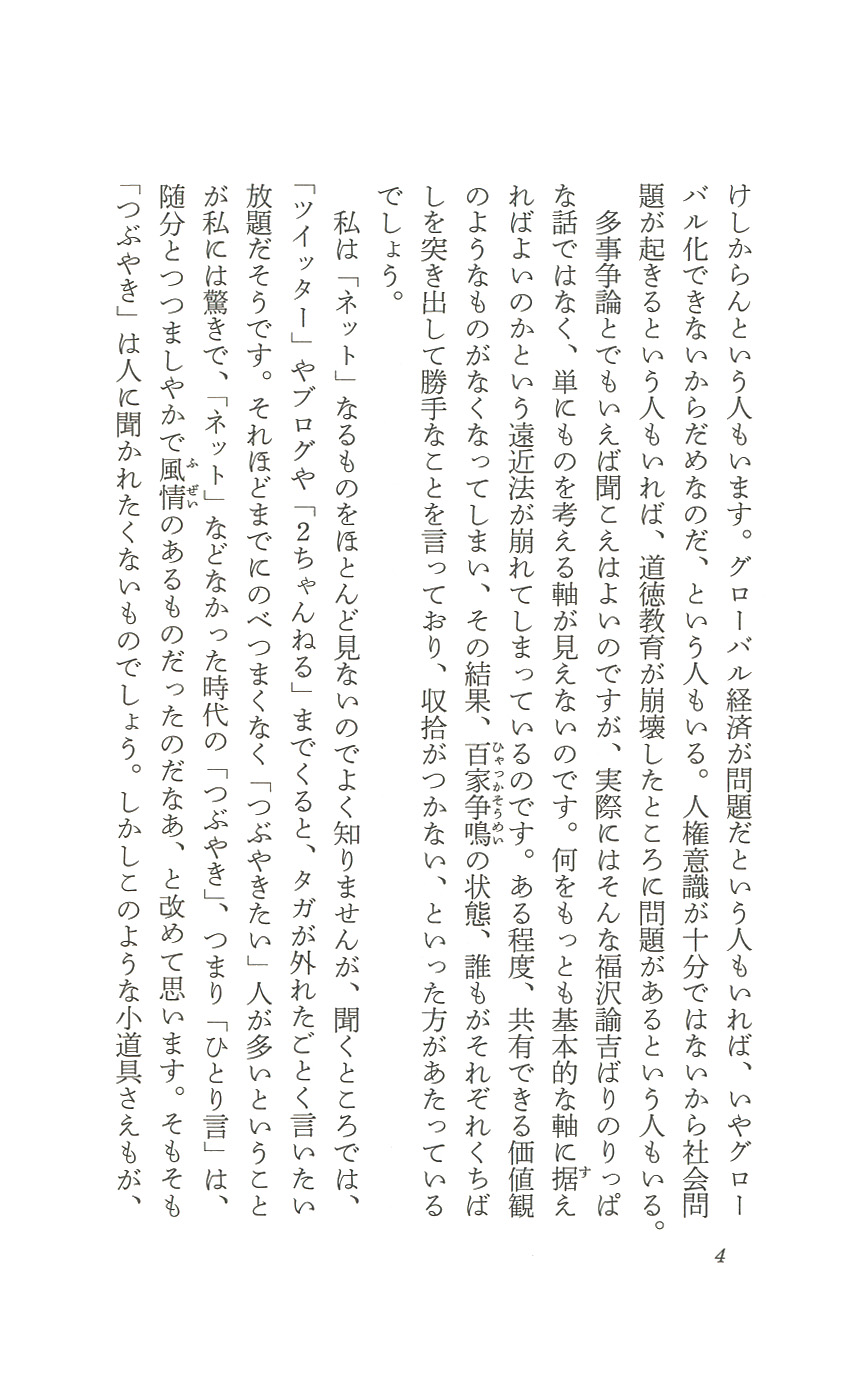 けしからんという人もいます。グローバル経済が問題だという人もいれば、いやグロー
バル化できないからだめなのだ、という人もいる。人権意識が十分ではないから社会問
題が起きるという人もいれば、道徳教育が崩壊したところに問題があるという人もいる。
多事争論とでもいえば聞こえはよいのですが、実際にはそんな福沢諭吉ばりのりっぱ
な話ではなく、単にものを考える軸が見えないのです。何をもっとも基本的な軸に据え
ればよいのかという遠近法が崩れてしまっているのです。ある程度、共有できる価値観
のようなものがなくなってしまい、その結果、百家争鳴の状態、誰もがそれぞれくちば
しを突き出して勝手なことを言っており、収拾がつかない、といった方があたっている
でしょう。
私は「ネット」なるものをほとんど見ないのでよく知りませんが、聞くところでは、
「ツイッター」やブログや「2ちゃんねる」までくると、タガが外れたごとく言いたい
放題だそうです。それほどまでにのべつまくなく「つぶやきたい」人が多いということ
が私には驚きで、「ネット」などなかった時代の「つぶやき」、つまり「ひとり言」は、
随分とつつましやかで風情のあるものだったのだなあ、と改めて思います。そもそも
「つぶやき」は人に聞かれたくないものでしょう。しかしこのような小道具さえもが、
す
ひゃっかそうめい
ふぜい
4